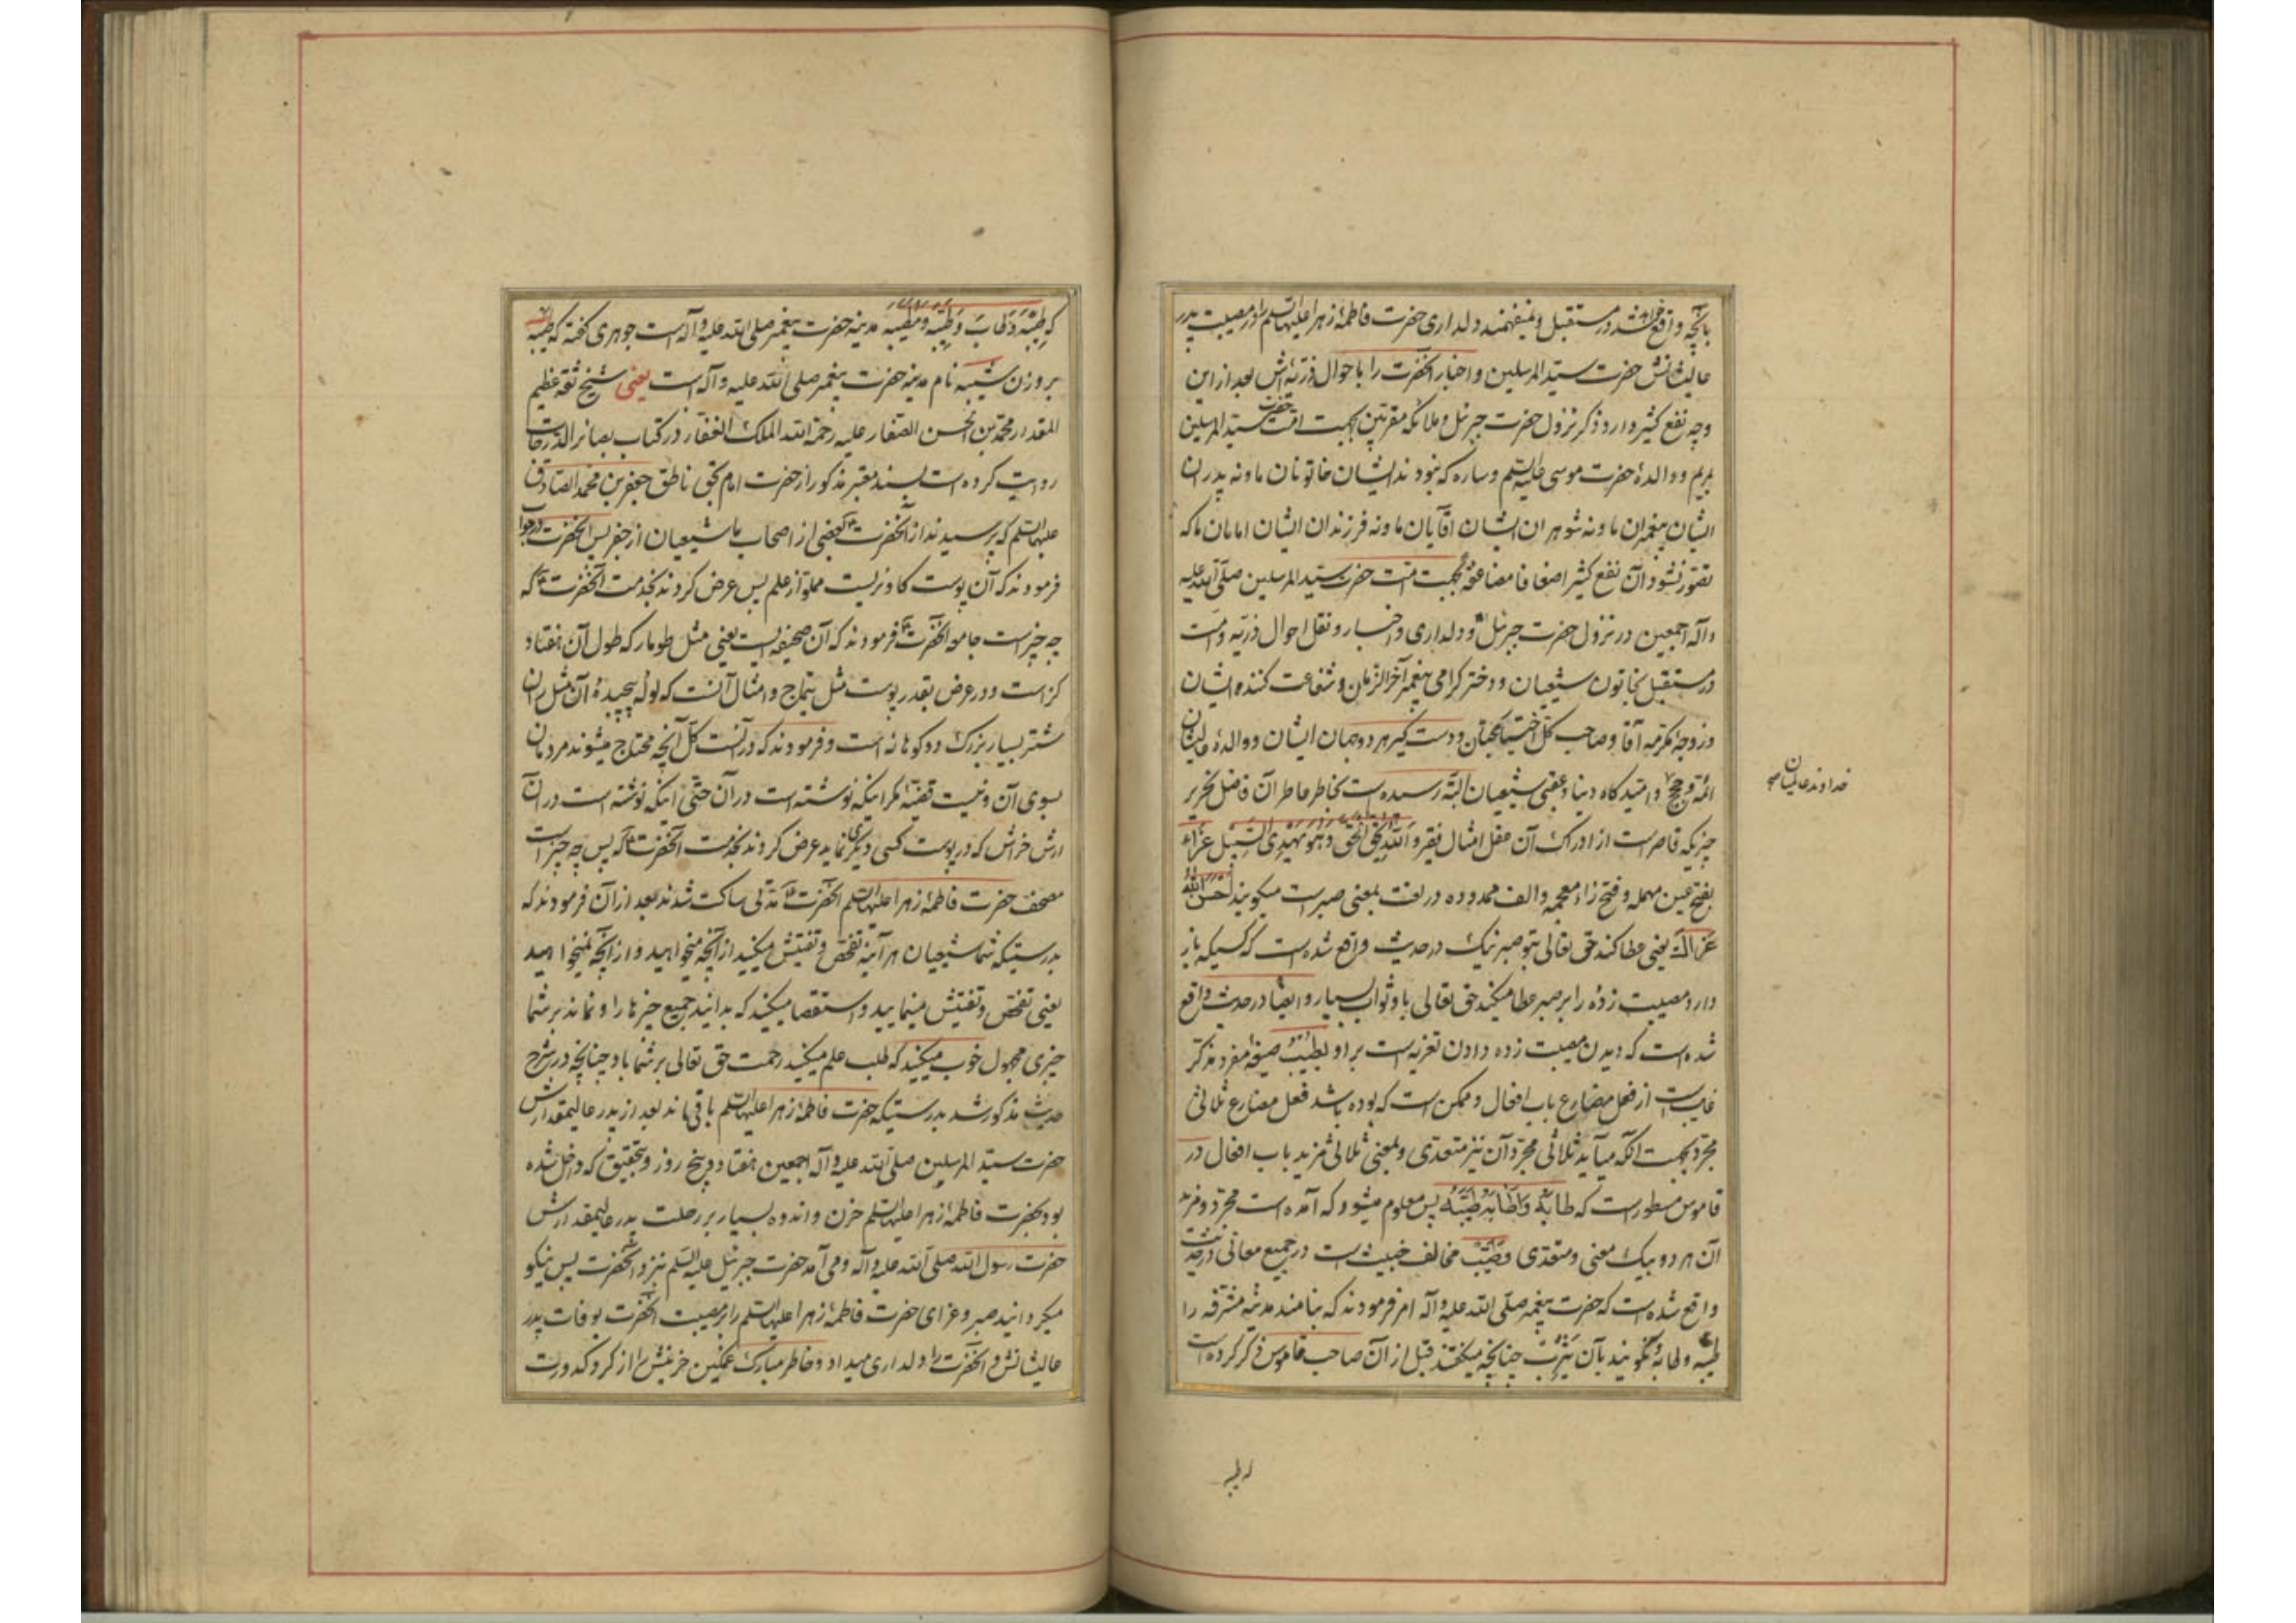 بآنچه واقع خواهد شد در مستقبل و نمیفهمند دلداری حضرت فاطمهٔ زهرا علیها السلم را در مصیبت پدر
عالیشانش حضرت سید المرسلین و اخبار آنحضرت را باحوال ذریه‌اش بعد از این
وجه نفع کثیر دارد ذکر نزول حضرت جبرئیل و ملائکه مقربین بجهت امت حضرت سید المرسلین
بمریم و والدهٔ حضرت موسی علیه السلم و ساره که نبودند ایشان خاتونان ما و نه پدران
ایشان پیغمبران ما و نه شوهران ایشان آقایان ما و نه فرزندان ایشان امامان ما که
تصور نشود آن نفع کثیر اضعافا مضاعفة بجهت امت حضرت سید المرسلین صلی الله علیه
و آله اجمعین در نزول حضرت جبرئیل و دلداری و اخبار و نقل احوال ذریه و امت
در مستقبل بخاتون شیعیان و دختر کرامی پیغمبر آخر الزمان و شفاعت کننده ایشان
و زوجهٔ مکرمه آقا و صاحب کل اختیار و دست کیر هر دو جهان ایشان و والدهٔ عالیشان
ائمه و حجج و امیدکاه دنیا و عقبی شیعیان البته رسیده است بخاطر عاطر آن فاضل نحریر
چیزیکه قاصر است از ادراک آن عقل امثال فقیر و الله یحق الحق و هو یهدی السبیل عزاء
بفتح عین مهمله و فتح زاء معجمه و الف ممدوده در لغت بمعنی صبر است میکویند احسن الله
عزاک یعنی عطا کند حق تعالی بتو صبر نیک در حدیث واقع شده است که کسیکه باز
دارد مصیبت زده را بر صبر عطا میکند حق تعالی باو ثواب بسیار و ایضا در حدیث واقع
شده است که دیدن مصیبت زده دادن تعزیه است بر او یطیب صیغهٔ مفرد مذکر
غایب است از فعل مضارع باب افعال و ممکن است که بوده باشد فعل مضارع ثلاثی
مجرد بجهت آنکه میآید ثلاثی مجرد آن نیز متعدی و بمعنی ثلاثی مزید باب افعال در
قاموس مسطور است که طابه و اطابه و طیبه پس معلوم میشود که آمده است مجرد و مزید
آن هر دو بیک معنی و متعدی و طیب مخالف خبیث است در جمیع معانی در حدیث
واقع شده است که حضرت پیغمبر صلی الله علیه و آله امر فرمودند که بنامند مدینه مشرفه را
طیبه و طابه و نکویند بآن یثرب چنانچه میکفتند قبل از آن صاحب قاموس ذکر کرده است
خداوند عالمیان صح
که طیبه
که طیبة و طاب و طیبه و مطیبه مدینه حضرت پیغمبر صلی الله علیه و آله است جوهری کفته که طیبه
بر وزن شیبه نام مدینه حضرت پیغمبر صلی الله علیه و آله است یعنی شیخ ثقه عظیم
المقدار محمد بن الحسن الصفار علیه رحمة الله الملک الغفار در کتاب بصائر الدرجات
روایت کرده است بسند معتبر مذکور از حضرت امام بحق ناطق جعفر بن محمد الصادق
علیهما السلم که پرسیدند از آنحضرت بعضی از اصحاب ما شیعیان از جفر پس آنحضرت در جواب
فرمودند که آن پوست کاو نریست مملو از علم پس عرض کردند بخدمت آنحضرت که
چه چیز است جامعه آنحضرت فرمودند که آن صحیفه ایست یعنی مثل طومار که طول آن هفتاد
کز است و در عرض بقدر پوست مثل تیماج و امثال آنست که لولهٔ پیچیدهٔ آن مثل ران
شتر بسیار بزرک دو کوهانه است و فرمودند که در آنست کل آنچه محتاج میشوند مردمان
بسوی آن و نیست قضیهٔ مکر اینکه نوشته است در آن حتی اینکه نوشته است در آن
ارش خراش که در پوست کسی دیکری نماید عرض کردند بخدمت آنحضرت که پس چه چیز است
مصحف حضرت فاطمهٔ زهرا علیها السلم آنحضرت مدتی ساکت شدند بعد از آن فرمودند که
بدرستیکه شما شیعیان هر آینه تفحص و تفتیش میکنید از آنچه میخواهید و از آنچه نمیخواهید
یعنی تفحص و تفتیش مینمایید و استقصا میکنید که بدانید جمیع چیزها را و نماند بر شما
چیزی مجهول خوب میکنید که طلب علم میکنید رحمت حق تعالی بر شما باد چنانچه در شرح
حدیث مذکور شد بدرستیکه حضرت فاطمهٔ زهرا علیها السلم باقی ماند بعد از پدر عالیمقدارش
حضرت سید المرسلین صلی الله علیه و آله اجمعین هفتاد و پنج روز و بتحقیق که داخل شده
بود بحضرت فاطمهٔ زهرا علیها السلم حزن و اندوه بسیار بر رحلت پدر عالیمقدارش
حضرت رسول الله صلی الله علیه و آله و می آمد حضرت جبرئیل علیه السلم نزد آنحضرت پس نیکو
میکردانید صبر و عزای حضرت فاطمهٔ زهرا علیها السلم را بر مصیبت آنحضرت بوفات پدر
عالیشانش و آنحضرت را دلداری میداد و خاطر مبارک غمکین حزینش را از کرد کدورت